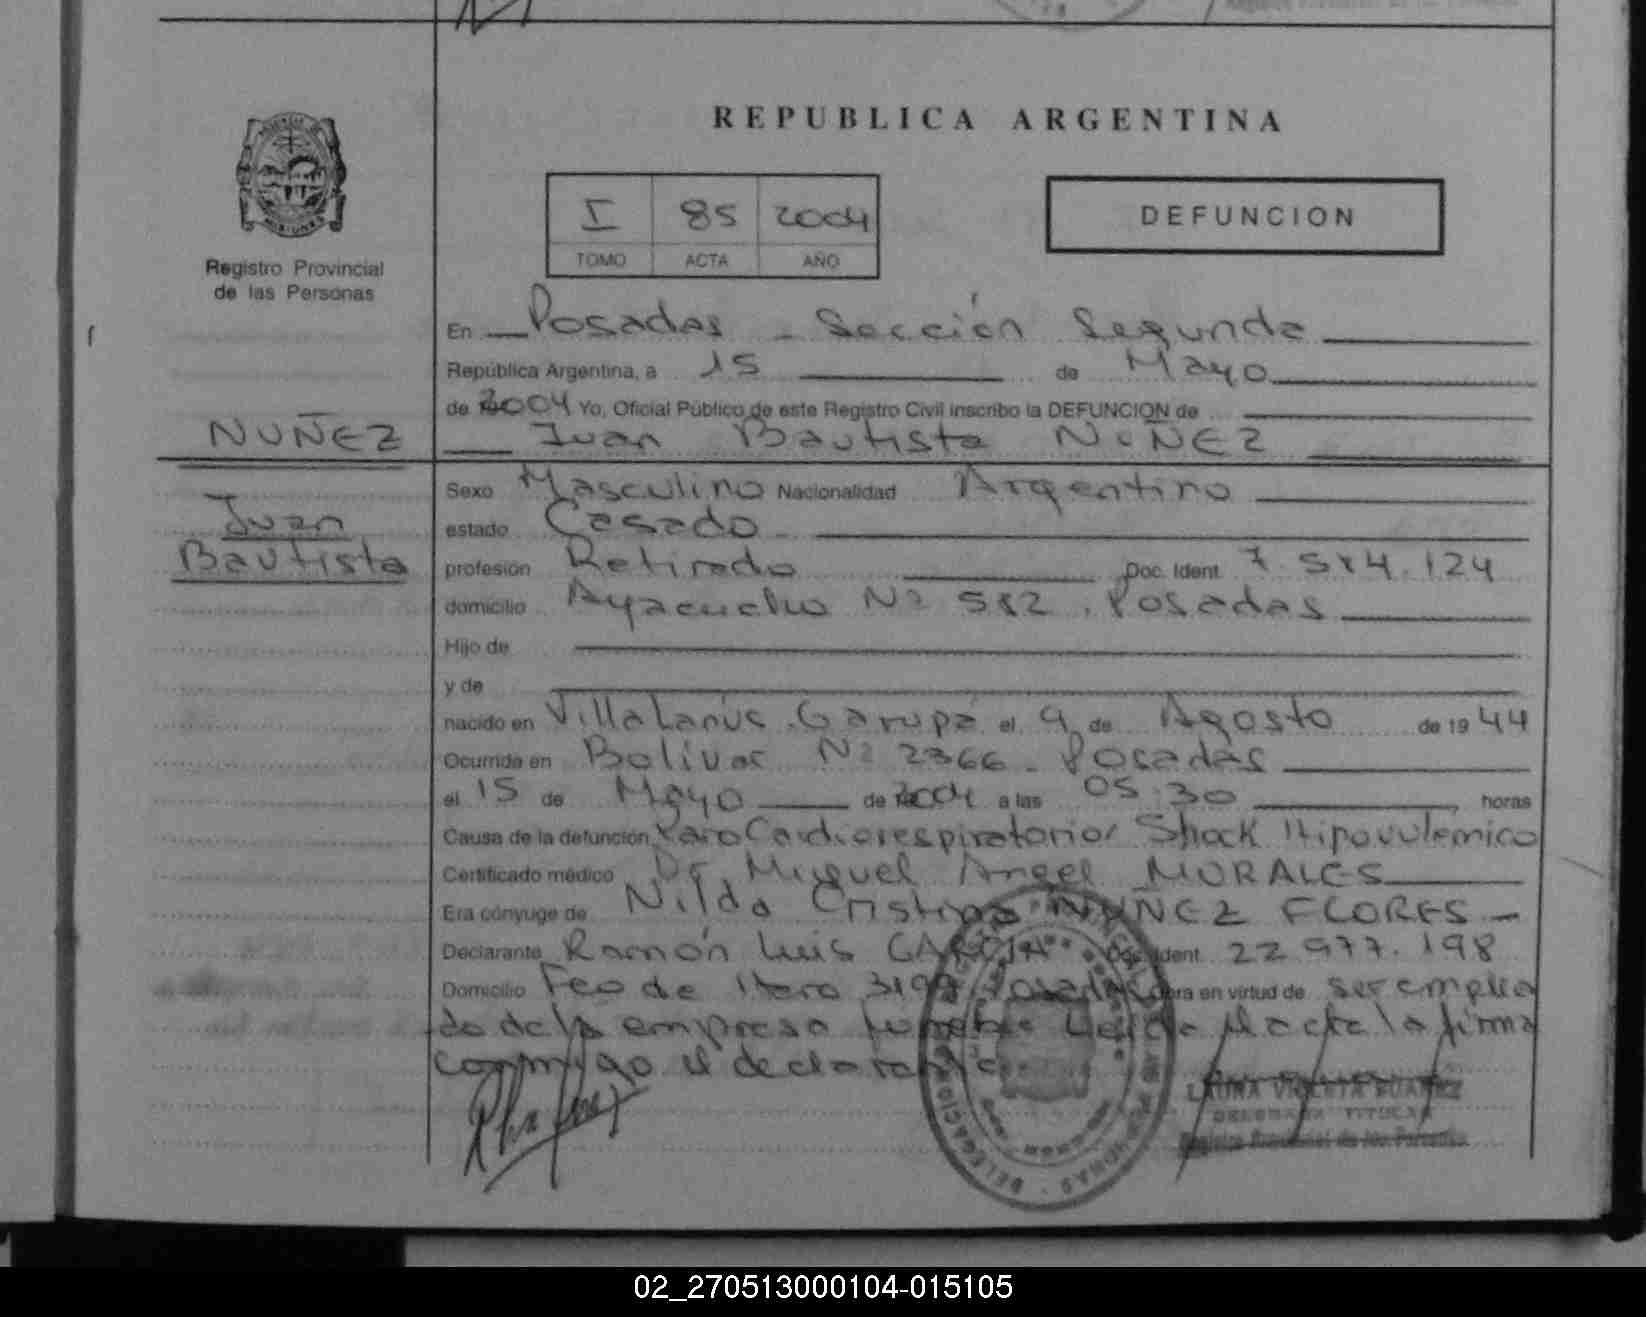 REPUBLICA ARGENTINA
I 85 2004
TOMO ACTA AÑO
DEFUNCION
Registro Provincial
de las Personas
NUÑEZ
Juan
Bautista
En Posadas - Sección Segunda
República Argentina, a 15 de Mayo
de 2004 Yo, Oficial Público de este Registro Civil inscribo la DEFUNCION de
Juan Bautista NUÑEZ
Sexo Masculino Nacionalidad Argentino
estado Casado
profesión Retirado Doc. Ident. 7.584.124
domicilio Ayacucho Nº 582. Posadas
Hijo de
y de
nacido en Villa Lanús. Garupá el 9 de Agosto de 1944
Ocurrida en Bolívar Nº 2366 - Posadas
el 15 de Mayo de 2004 a las 05:30 horas
Causa de la defunción Paro Cardiorespiratorio/ Shock Hipovulemico
Certificado médico Dr. Miguel Angel MORALES
Era cónyuge de Nilda Cristina NUNEZ FLORES -
Declarante Ramón Luis GARCIA Doc. Ident. 22.977.198
Domicilio Fco de Haro 3198 Posadas Obra en virtud de ser emplea
do de la empresa funebre Leida el acta la firma
conmigo el declarante
LAURA VIOLETA SUAREZ
DELEGADA TITULAR
Registro Provincial de las Personas
02_270513000104-015105